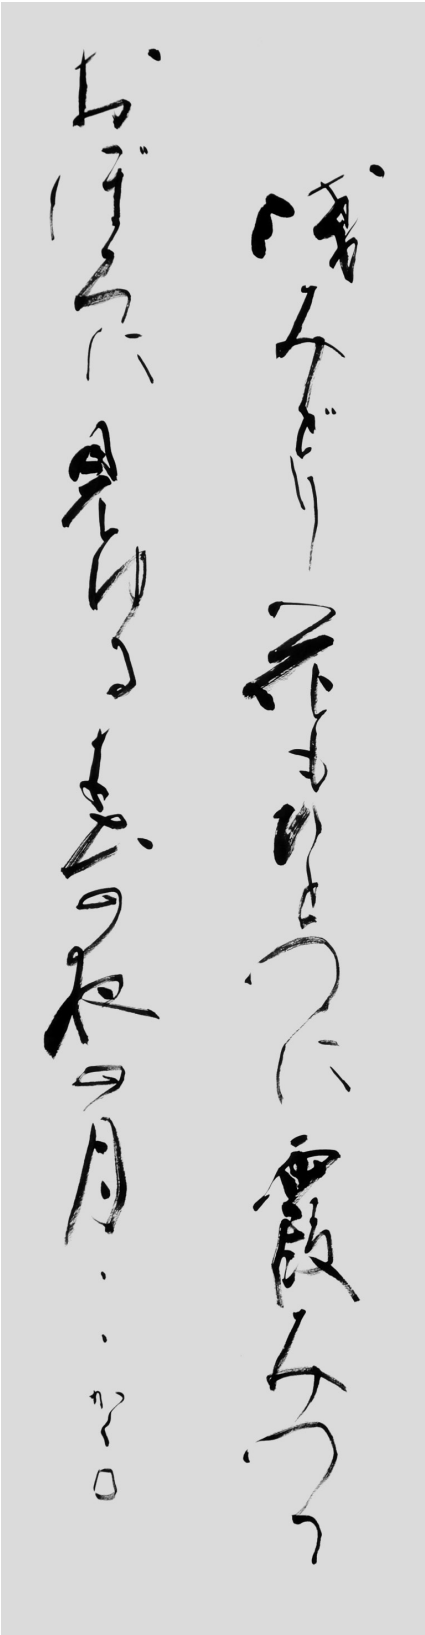 浅みどり花もひとつに霞みつつ
おぼろに見ゆる春の夜の月・・かく